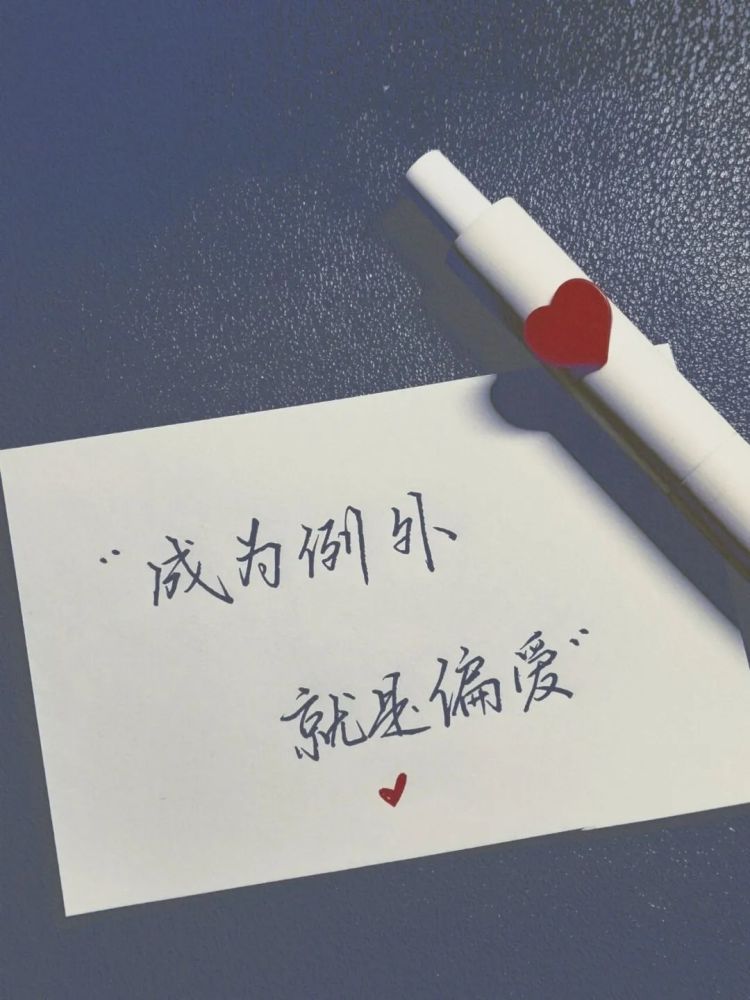 “成为例外
就是偏爱”